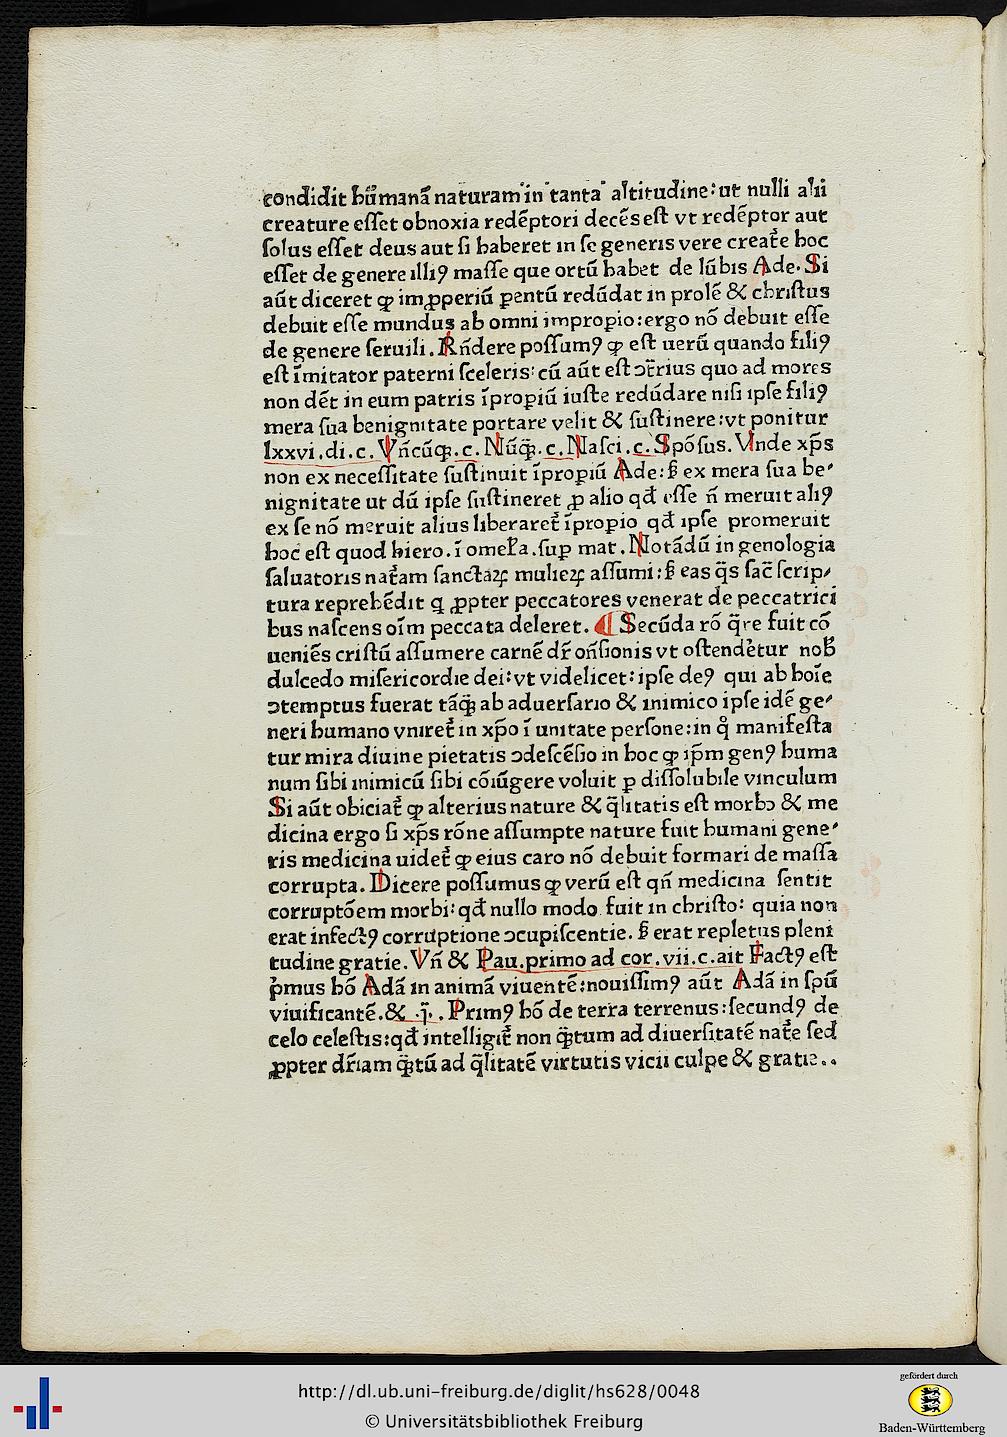 condidit hūmanā naturam in tanta altitudine: ut nulli alii
creature eſſet obnoxia redēptori decēs eſt vt redēptor aut
ſolus eſſet deus aut ſi haberet in ſe generis vere creat̄e hoc
eſſet de genere illiꝰ maſſe que ortū habet de lūbis Ade. Si
aūt diceret ꝙ imꝓperiū ꝑentū redūdat in prolē & chriſtus
debuit eſſe mundus ab omni impropio: ergo nō debuit eſſe
de genere ſeruili. Rn̄dere poſſumꝰ ꝙ eſt uerū quando filiꝰ
eſt īmitator paterni ſceleris: cū aūt eſt ↄt̄rius quo ad mores
non dēt in eum patris īpropiū iuſte redūdare niſi ipſe filiꝰ
mera ſua benignitate portare velit & ſuſtinere: vt ponitur
lxxvi. di. c. Vn̄cūq̄. c. Nūq̄. c. Naſci. c. Spōſus. Vnde xp̄s
non ex neceſſitate ſuſtinuit īpropiū Ade: ſꝫ ex mera ſua be⸗
nignitate ut dū ipſe ſuſtineret ꝓ alio qd̄ eſſe n̄ meruit aliꝰ
ex ſe nō meruit alius liberaret̄ īpropio qd̄ ipſe promeruit
hoc eſt quod hiero. ī omel̄a. ſuꝑ mat. Notādū in genologia
ſaluatoris nat̄am ſanctaꝝ mulieꝝ aſſumi: ſꝫ eas q̄s ſac̄ ſcrip⸗
tura reprehēdit ꝗ ꝓpter peccatores venerat de peccatrici
bus naſcens oīm peccata deleret. ¶ Secūda rō q̄re fuit cō
ueniēs criſtū aſſumere carnē dr̄ on̄ſionis vt oſtendet̄ur nob̄
dulcedo miſericordie dei: vt videlicet: ipſe deꝰ qui ab hoīe
ↄtemptus fuerat tāq̄ ab aduerſario & inimico ipſe idē ge⸗
neri humano vniret̄ in xp̄o ī unitate perſone: in qͦ manifeſta
tur mira diuine pietatis ↄdeſcēſio in hoc ꝙ ip̄m genꝰ huma
num ſibi inimicū ſibi cōiūgere voluit ꝑ diſſolubile vinculum
Si aūt obiciat̄ ꝙ alterius nature & q̄litatis eſt morbo & me
dicina ergo ſi xp̄s rōne aſſumpte nature fuit humani gene⸗
ris medicina uidet̄ ꝙ eius caro nō debuit formari de maſſa
corrupta. Dicere poſſumus ꝙ verū eſt qn̄ medicina ſentit
corruptōem morbi: qd̄ nullo modo fuit in chriſto: quia non
erat infectꝰ corruptione ↄcupiſcentie. ſꝫ erat repletus pleni
tudine gratie. Vn̄ & Pau. primo ad cor. vii. c. ait Factꝰ eſt
p̄mus hō Adā in animā viuentē: nouiſſimꝰ aūt Adā in ſpū
viuificantē. & .j̄. . Primꝰ hō de terra terrenus: ſecundꝰ de
celo celeſtis: qd̄ intelligit̄ non q̄tum ad diuerſitatē nat̄e ſed
ꝓpter dr̄iam q̄tū ad q̄litatē virtutis vicii culpe & gratie..
http://dl.ub.uni-freiburg.de/diglit/hs628/0048
© Universitätsbibliothek Freiburg
gefördert durch
Baden-Württemberg